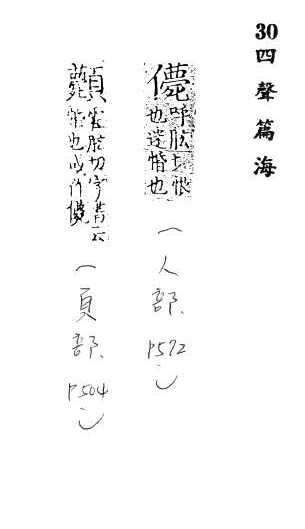 30四聲篇海
呼肱切恨
也迷惛也
（人部、P572）
肱切字書云
惛也或作
（頁部、P504）